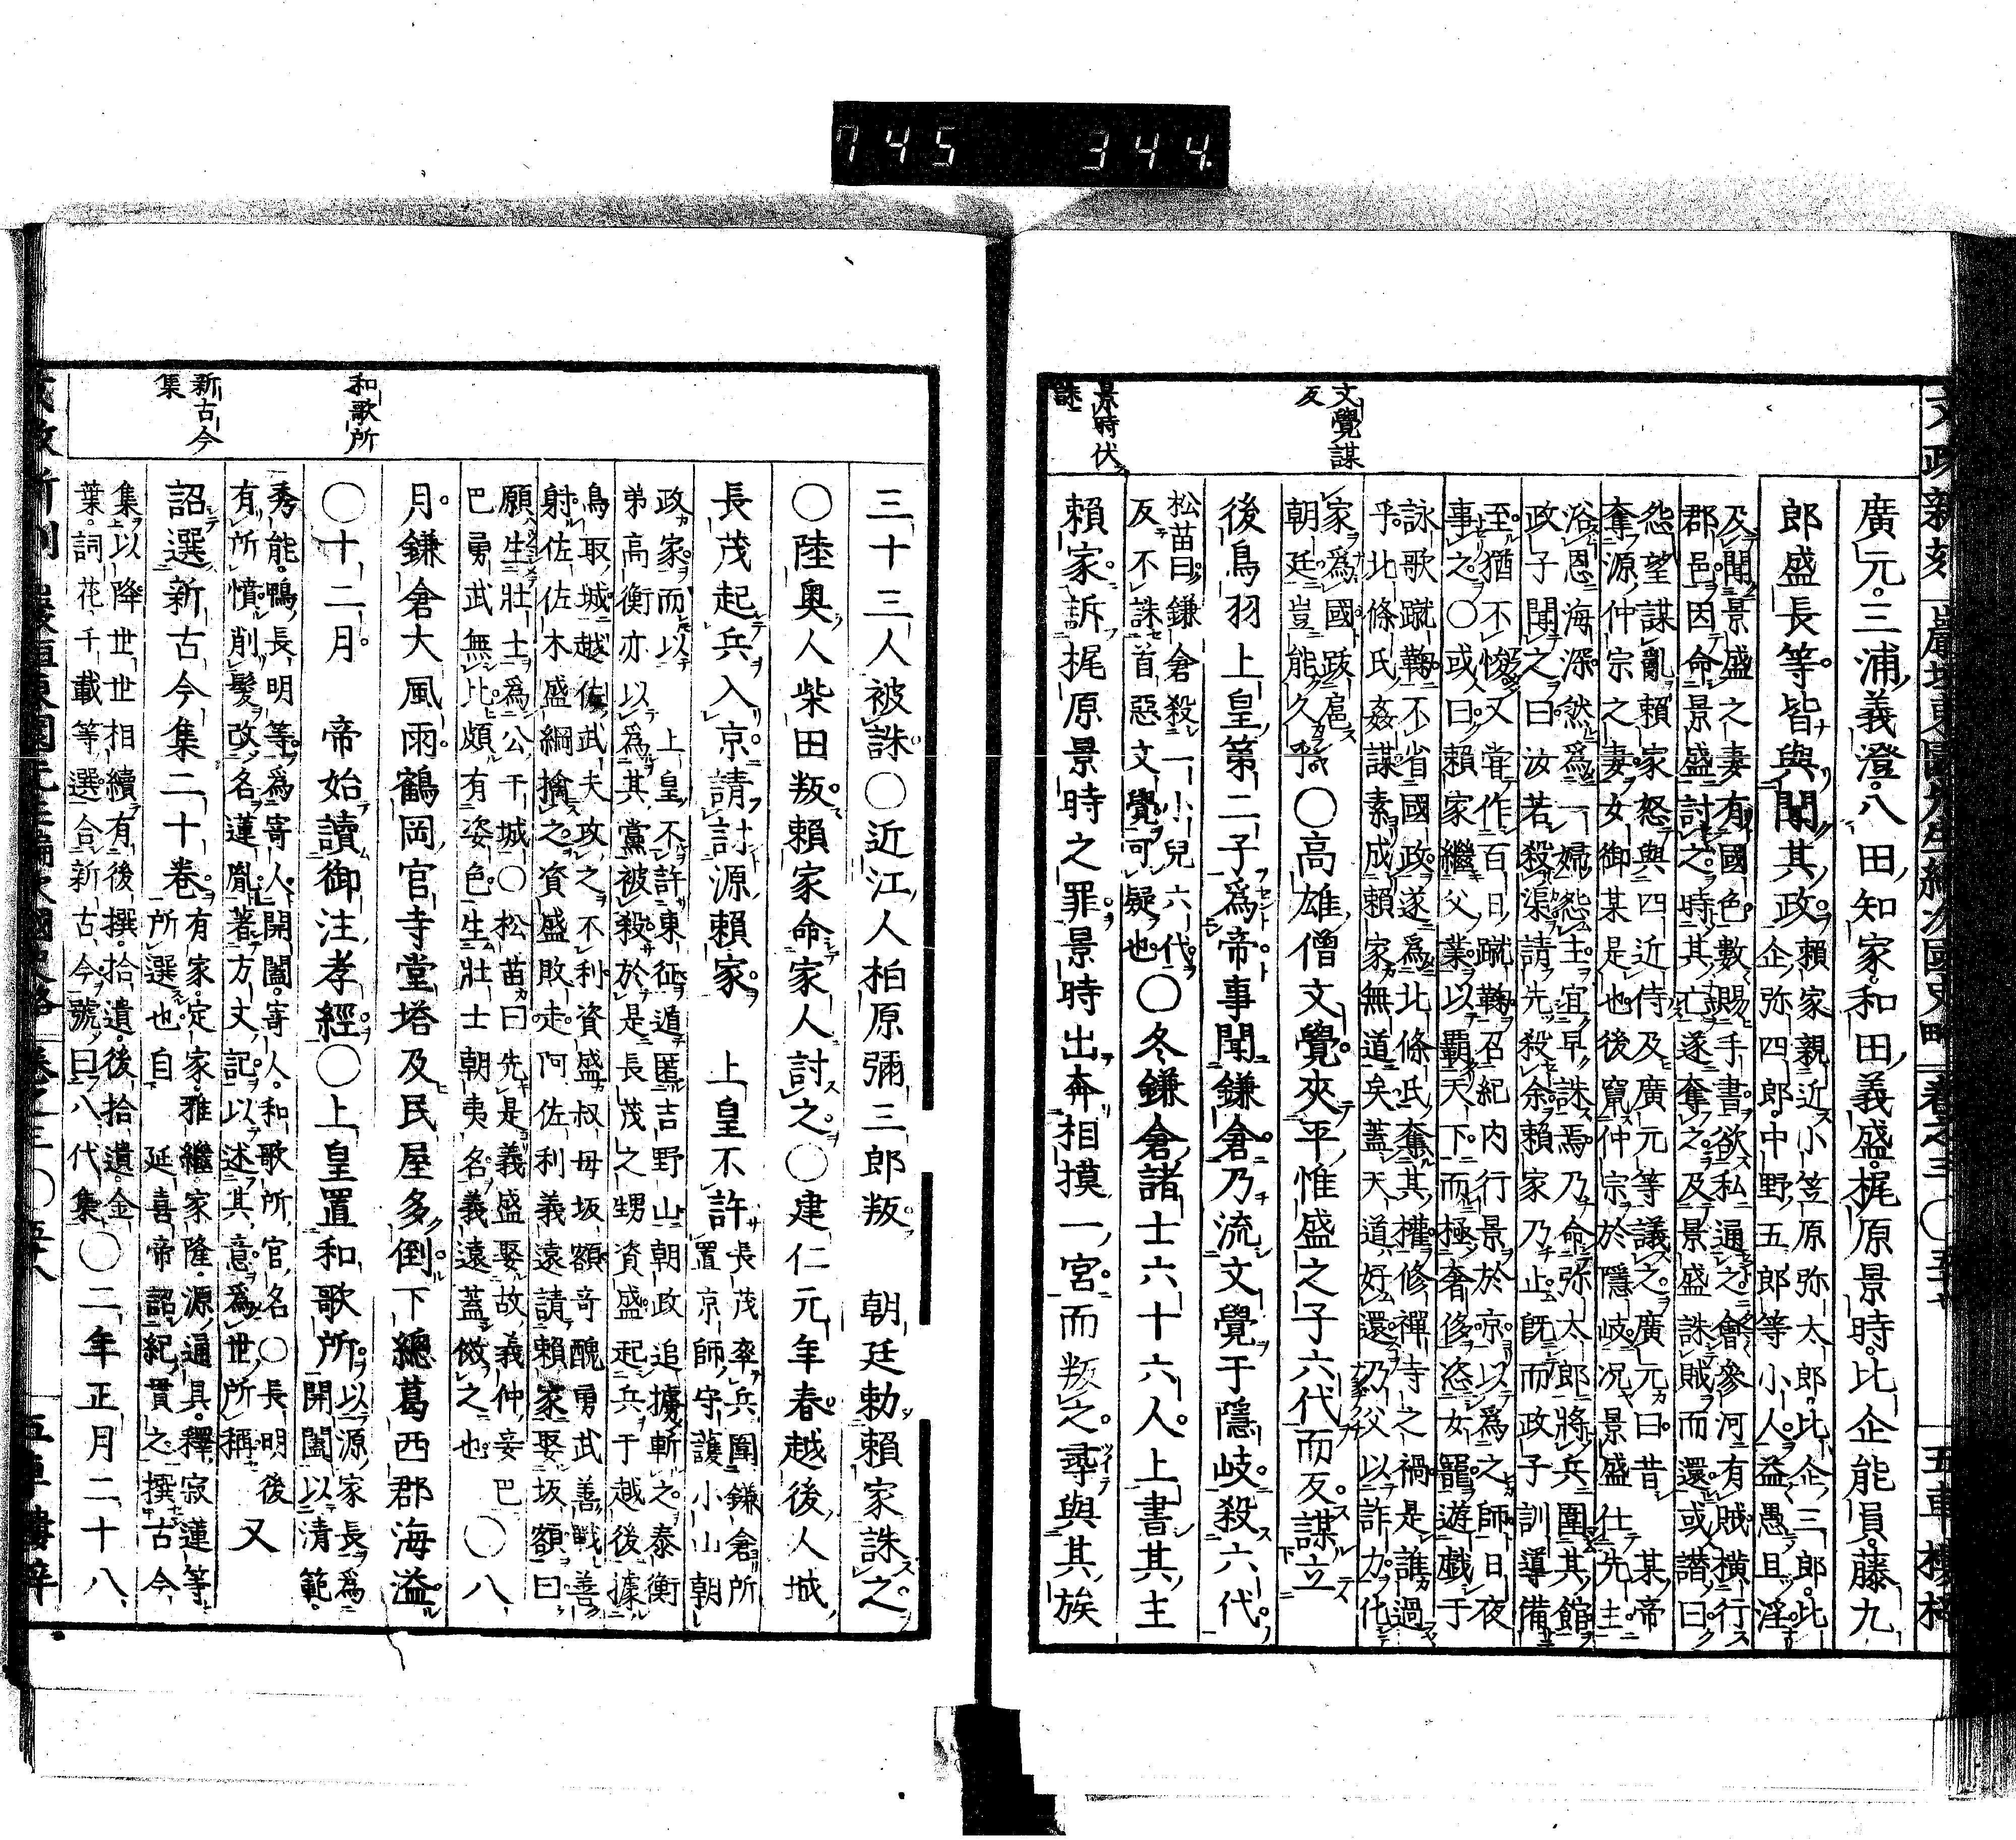 745 344
廣元三浦義澄八田知家和田義盛梶原景時比企能員藤九
郎盛長等皆與聞其政
賴家親近小笠原弥太郎比企三郎比
企弥四郎中野五郎等小人益愚且淫
及聞景盛之妻有國色數賜手書欲私通之會參河有賊橫行
郡邑因命景盛討之時其亡遂奪之及景盛誅賊而還或譖曰
怨望謀亂賴家怒與四近侍及廣元等議之廣元曰昔某帝
奪源仲宗之妻女御某是也後竄仲宗於隱岐况景盛仕先主
浴恩海深然爲一婦怨主宜早誅焉乃命弥太郎將兵圍其館
政子聞之曰汝若殺渠請先殺余賴家乃止既而政子訓導備
至猶不悛又嘗作百日蹴鞠召紀内行景於京以爲之師日夜
事之〇或曰賴家繼父業以覇天下而極奢侈恣女寵遊戲于
詠歌蹴鞠不省國政遂爲北條氏奪其權修禪寺之禍是誰過
乎北條氏姦謀素成賴家無道矣蓋天道好還乃父以詐力化
家爲國跋扈
朝廷豈能久乎
〇高雄僧文覺夾平惟盛之子六代而反謀立
後鳥羽上皇第二子爲帝事聞鎌倉乃流文覺于隱岐殺六代
松苗曰鎌倉殺一小兒六代
反不誅首惡文覺可疑也
〇冬鎌倉諸士六十六人上書其主
賴家訴梶原景時之罪景時出奔相摸一宮而叛之尋與其族
文覺謀
反
景時伏
誅
三十三人被誅〇近江人柏原彌三郎叛 朝廷勅賴家誅之
〇陸奥人柴田叛賴家命家人討之〇建仁元年春越後人城
長茂起兵入京請討源賴家 上皇不許
長茂率兵圍鎌倉所
置京師守護小山朝
政家而以 上皇不許東征遁匿吉野山朝政追擄斬之泰衡
弟高衡亦以爲其黨被殺於是長茂之甥資盛起兵于越後據
鳥取城越佐武夫攻之不利資盛叔母坂額奇醜勇武善戰善
射佐佐木盛綱擒之資盛敗走阿佐利義遠請賴家娶坂額曰
願生壯士爲公干城〇松苗曰先是義盛娶故義仲妾巴
巴勇武無比頗有姿色生壯士朝夷名義遠蓋傚之也
〇八
月鎌倉大風雨鶴岡官寺堂塔及民屋多倒下總葛西郡海溢
〇十二月 帝始讀御注孝經〇上皇置和歌所
以源家長爲
開闔以清範
秀能鴨長明等爲寄人開闔寄人和歌所官名〇長明後
有所憤削髮改名蓮胤著方丈記以述其意爲世所稱
又
詔選新古今集二十卷
有家定家雅繼家隆源通具釋寂蓮等
所選也自 延喜帝詔紀貫之撰古今
集以降世世相續有後撰拾遺後拾遺金
葉詞花千載等選合新古今號曰八代集
〇二年正月二十八
和歌所
新古今
集